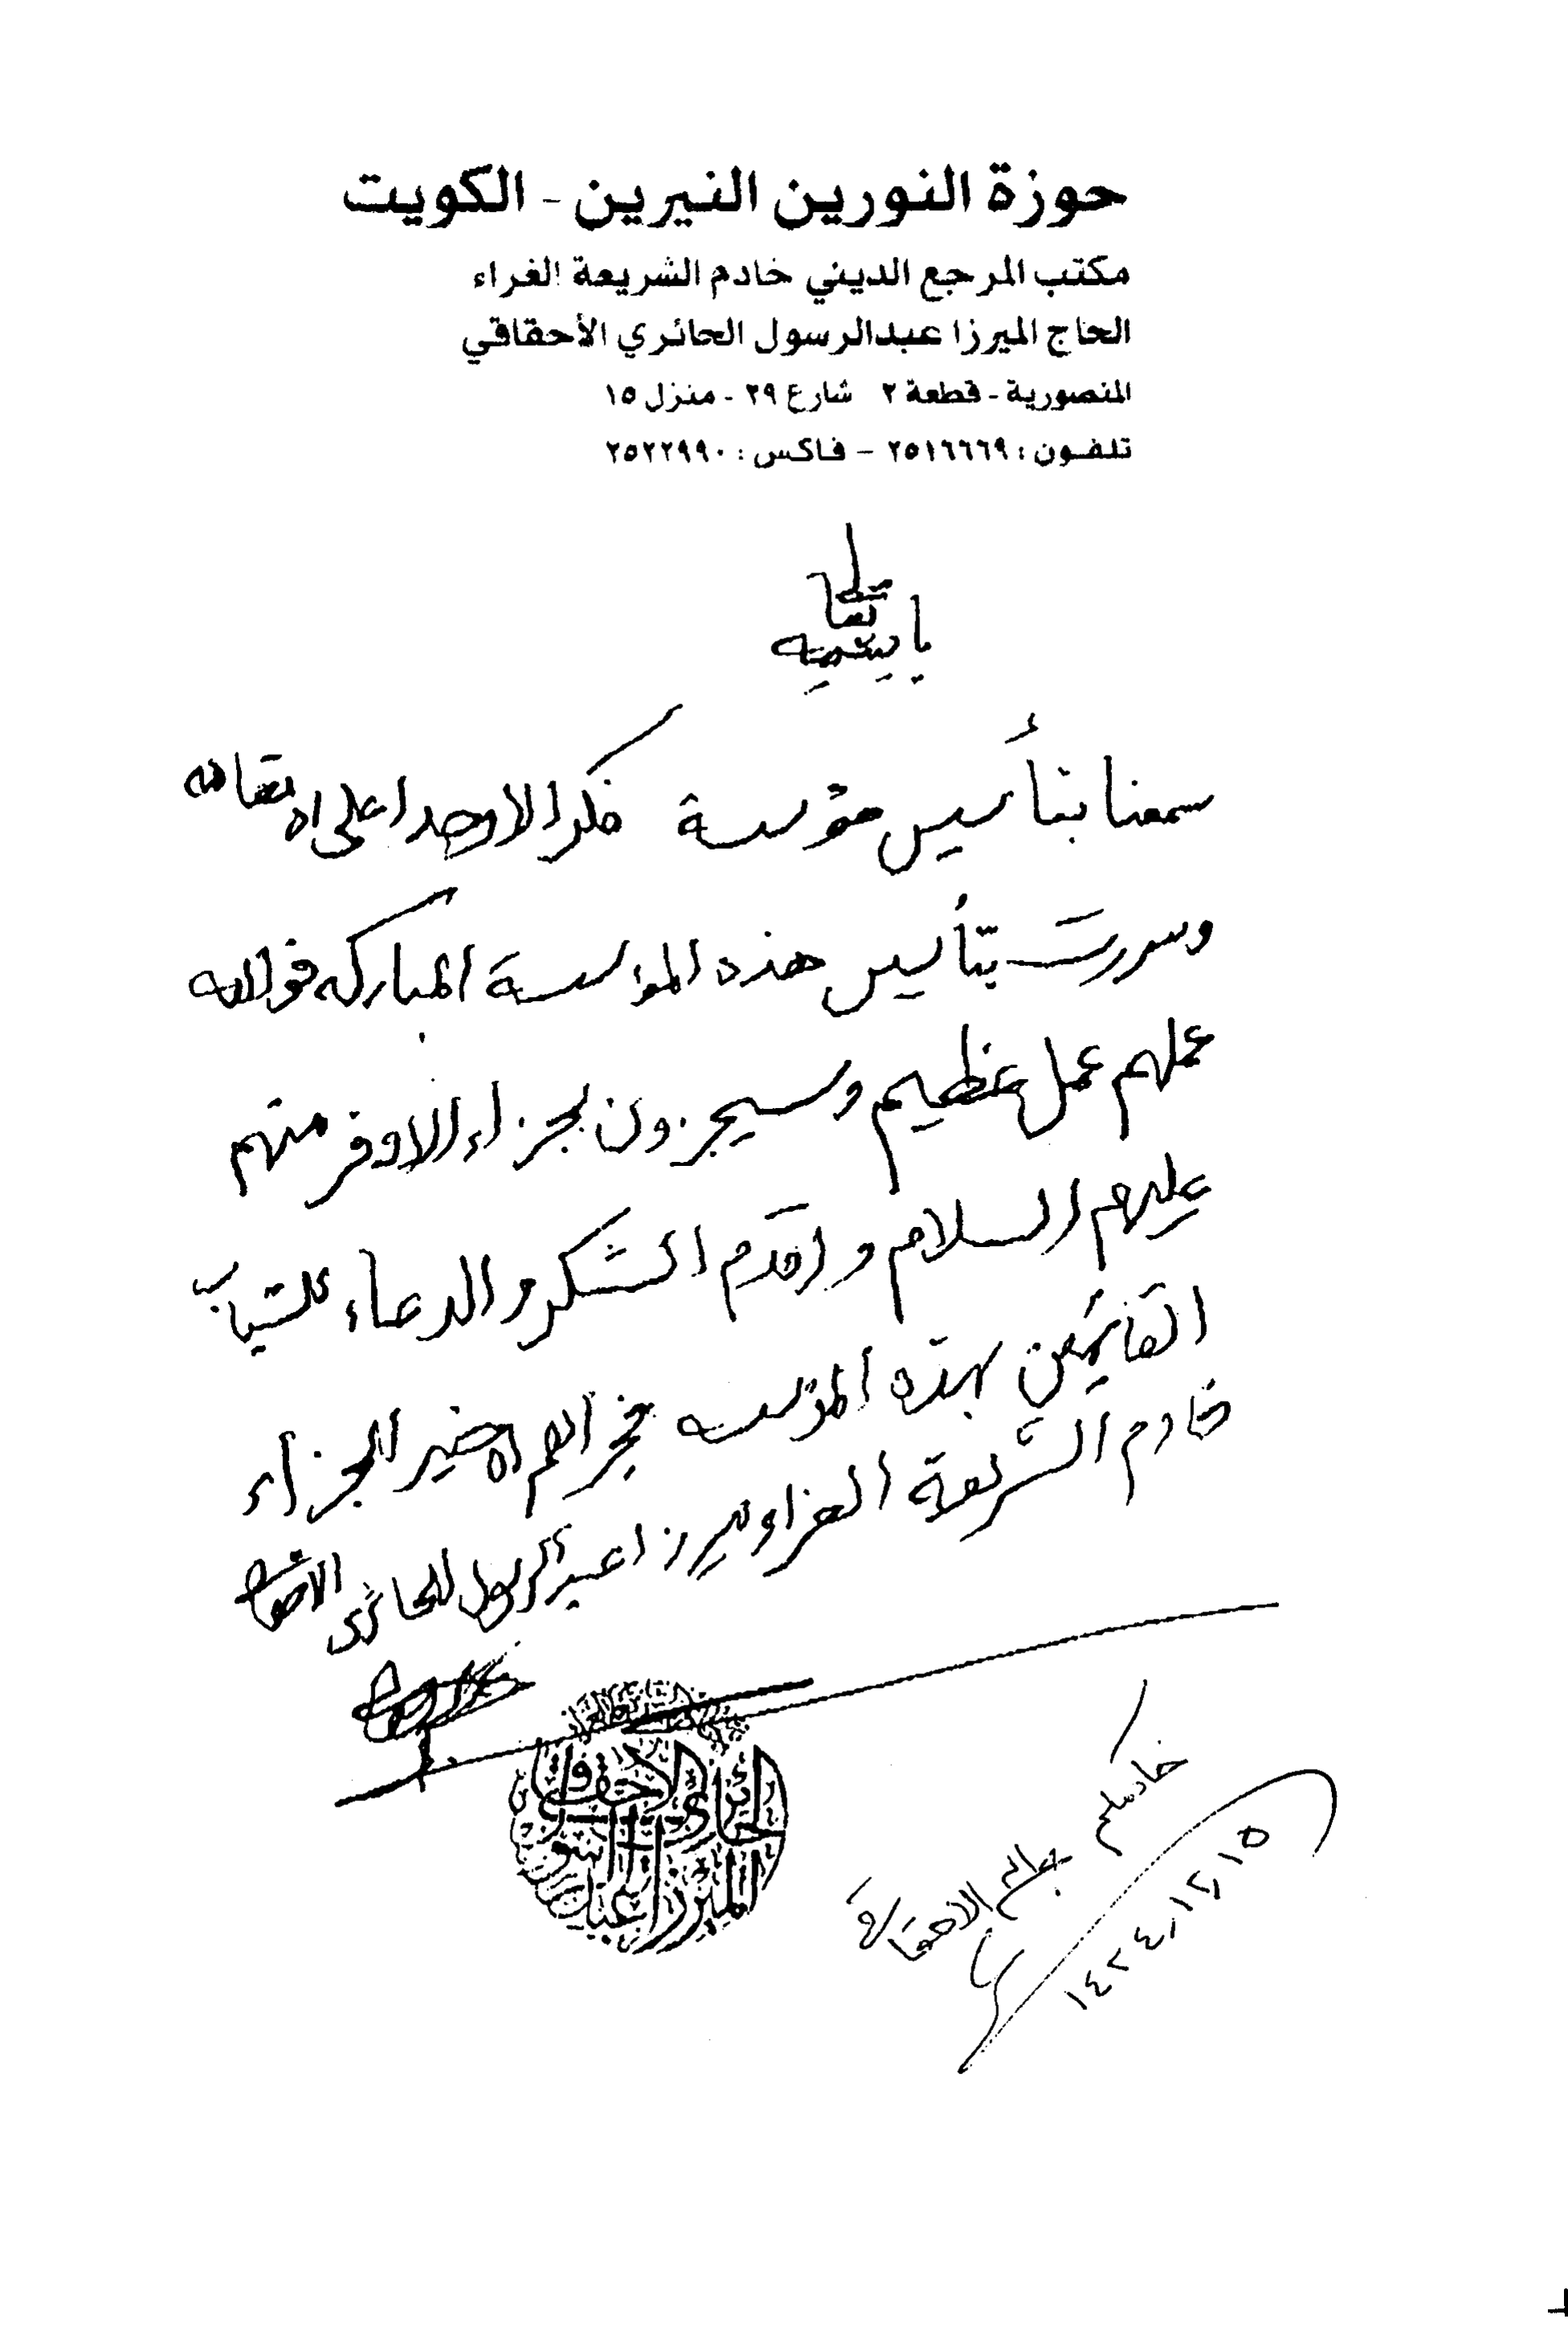 حوزة النورين النيرين - الكويت
مكتب المرجع الديني خادم الشريعة الغراء
الحاج الميرزا عبدالرسول الحائري الأحقاقي
المنصورية - قطعة ٢ شارع ٢٩ - منزل ١٥
تلفون : ٢٥١٦٦٦٩ - فاكس : ٢٥٢٢٩٩٠
تعالى
سمعنا بتأسيس مؤسسة فكر الاوحد اعلى الله مقامه
وسررت بتأسيس هذه المؤسسة المباركه فوالله
عملهم عمل عظيم وسيجزون بجزاء الاوفر منهم
عليهم السلام و اقدم الشكر والدعاء للشباب
القائمين بهذه المؤسسه فجزاهم الله خير الجزاء
خادم الشريعة الغراء ميرزا عبدالرسول الحائرى الاحقاقي
الحائري الاحقاقي
الميرزا عبد الرسول
خادمكم
الاحقاقي
١٤٢٤/١٢/١٥